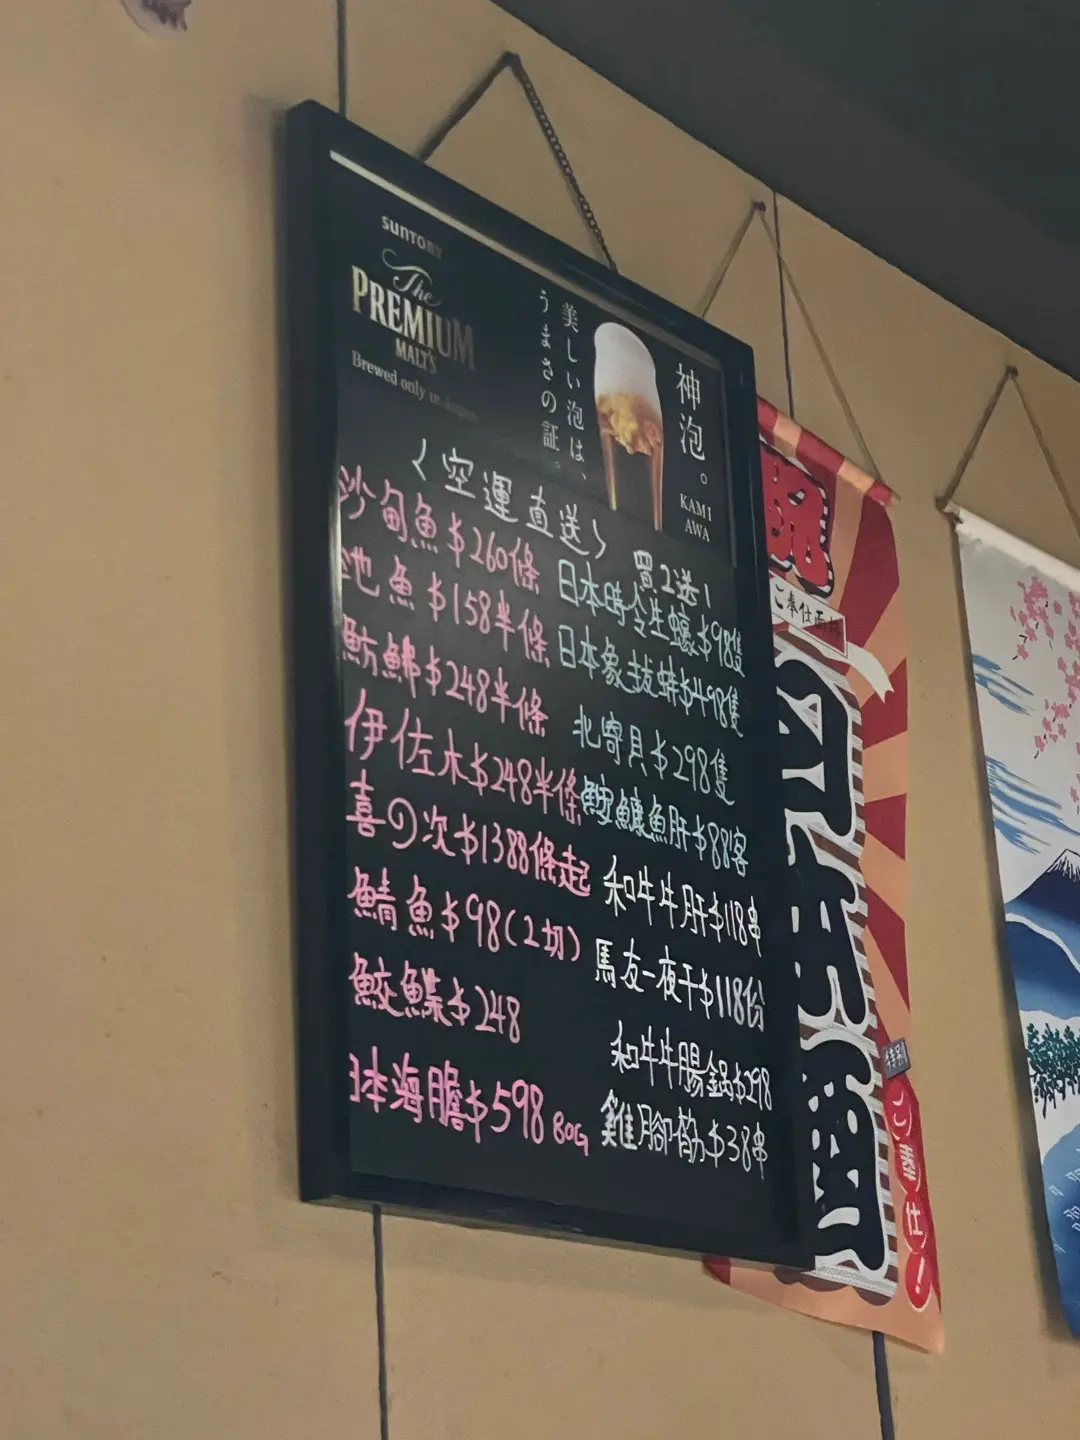 SUNTORY
The
PREMIUM
MALT'S
Brewed only in Japan
神泡。
KAMI
AWA
美しい泡は、
うまさの証。
〈空運直送〉
沙甸魚$260條
池魚$158半條
魴鮄$248半條
伊佐木$248半條
喜の次$1388條起
鯖魚$98(2切)
鮫鰈$248
日本海膽$598 80G
買2送1
日本時令生蠔$98隻
日本象拔蚌$498隻
北寄貝$298隻
鮟鱇魚肝$88客
和牛牛肝$118串
馬友一夜干$118份
和牛牛腸鍋$298
雞腳筋$38串
ご奉仕
ご奉仕!